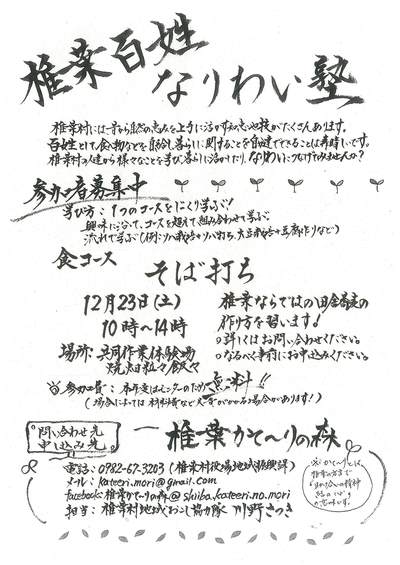 椎葉百姓
なりわい塾
椎葉村には昔から自然の恵みを上手に活かす知恵や技がたくさんあります。
百姓として、食べ物などを自給し暮らしに関することを自給できることは素晴らしいです。
椎葉村の人達から様々なことを学び暮らしに活かしたり、なりわいにつなげてみませんか?
参加者募集中
学び方:1つのコースをじっくり学ぶ!
興味に沿って、コースを超えて組み合わせて学ぶ。
流れで学ぶ(例:ソバ栽培+ソバ打ち、大豆栽培+豆腐作りなど)
食コース
そば打ち
12月23日(土)
10時〜14時
場所:共同作業体験場
焼畑粒々飯々
椎葉ならではの田舎蕎麦の
作り方を習います!
○詳しくはお問い合わせください。
○なるべく事前にお申込みください。
参加費:本年度はモニターのため無料!!
(場合によっては材料費など実費がかかる場合があります!)
問い合わせ先
申し込み先
椎葉かて〜りの森
電話:0982-67-3203(椎葉村役場地域振興課)
メール:kateeri.mori@gmail.com
facebook:椎葉かて〜りの森@shiiba.kateeri.no.mori
担当:椎葉村地域おこし協力隊 川野さつき
※「かて〜り」とは、
椎葉の方言で